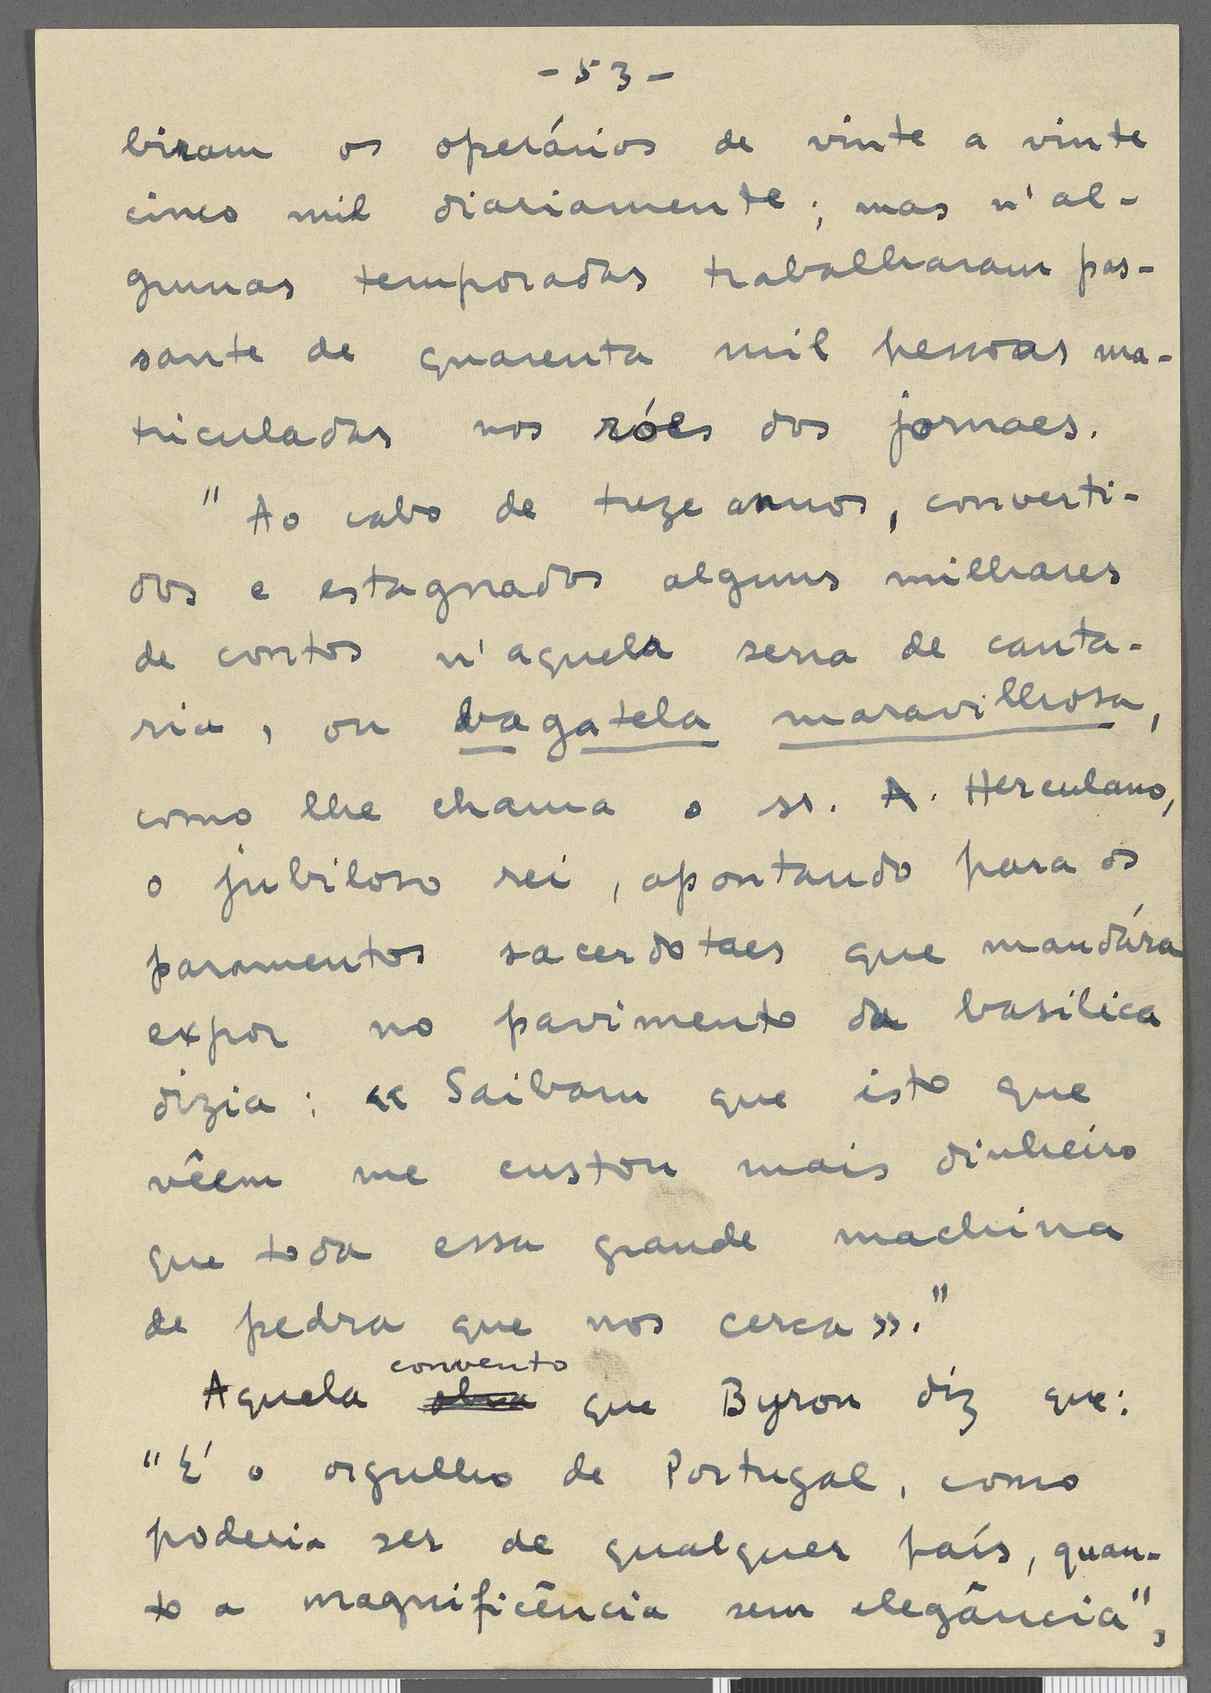 - 53 -
biram os operários de vinte a vinte
cinco mil diariamente; mas n'al-
gumas temporadas trabalharam pas-
sante de quarenta mil pessoas ma-
triculadas nos róes dos jornaes.
"Ao cabo de treze annos, converti-
dos e estagnados alguns milhares
de contos n'aquela serra de canta-
ria, ou bagatela maravilhosa,
como lhe chama o sr. A. Herculano,
o jubiloso rei, apontando para os
paramentos sacerdotaes que mandára
expor no pavimento da basílica
dizia: «Saibam que isto que
vêem me custou mais dinheiro
que toda essa grande machina
de pedra que nos cerca»."
Aquela obra convento que Byron diz que:
"É o orgulho de Portugal, como
poderia ser de qualquer país, quan-
to a magnificência sem elegância",